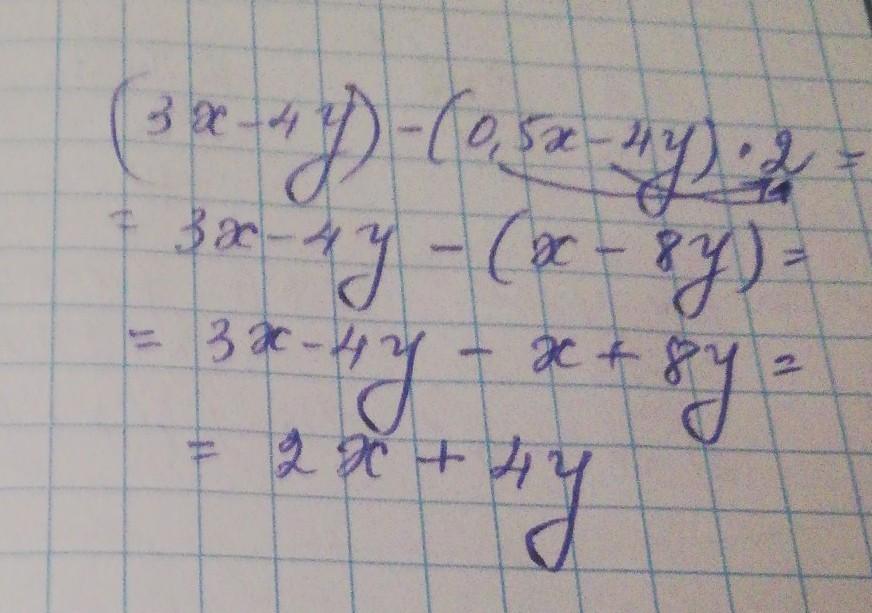 (3x-4y)-(0,5x-4y)·2=
=3x-4y-(x-8y)=
=3x-4y-x+8y=
=2x+4y